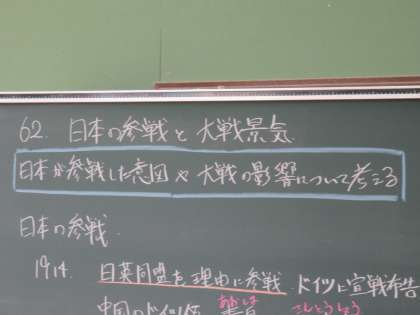 62. 日本の参戦と大戦景気
日本が参戦した意図や大戦の影響について考える
日本の参戦
1914. 日英同盟を理由に参戦. ドイツに宣戦布告
中国のドイツ